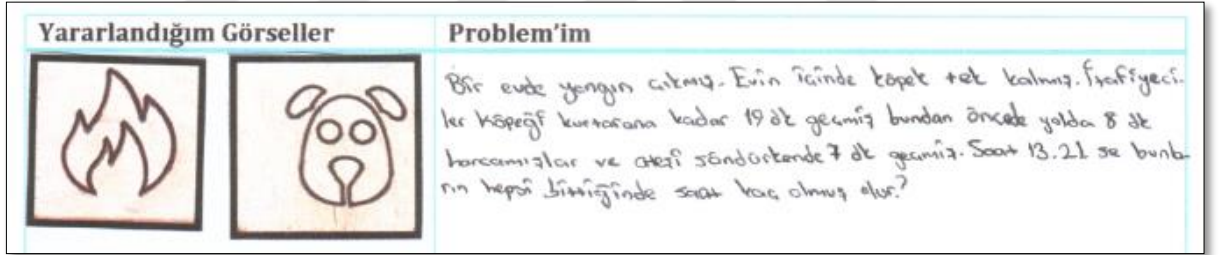 Yararlandığım Görseller
Problem'im
Bir evde yangın çıkmış. Evin içinde köpek tek kalmış. İtafiyeci-
ler köpeği kurtarana kadar 19 dk geçmiş bundan öncede yolda 8 dk
harcamışlar ve ateşi söndürkende 7 dk geçmiş. Saat 13.21 se bunla-
rın hepsi bittiğinde saat kaç olmuş olur?